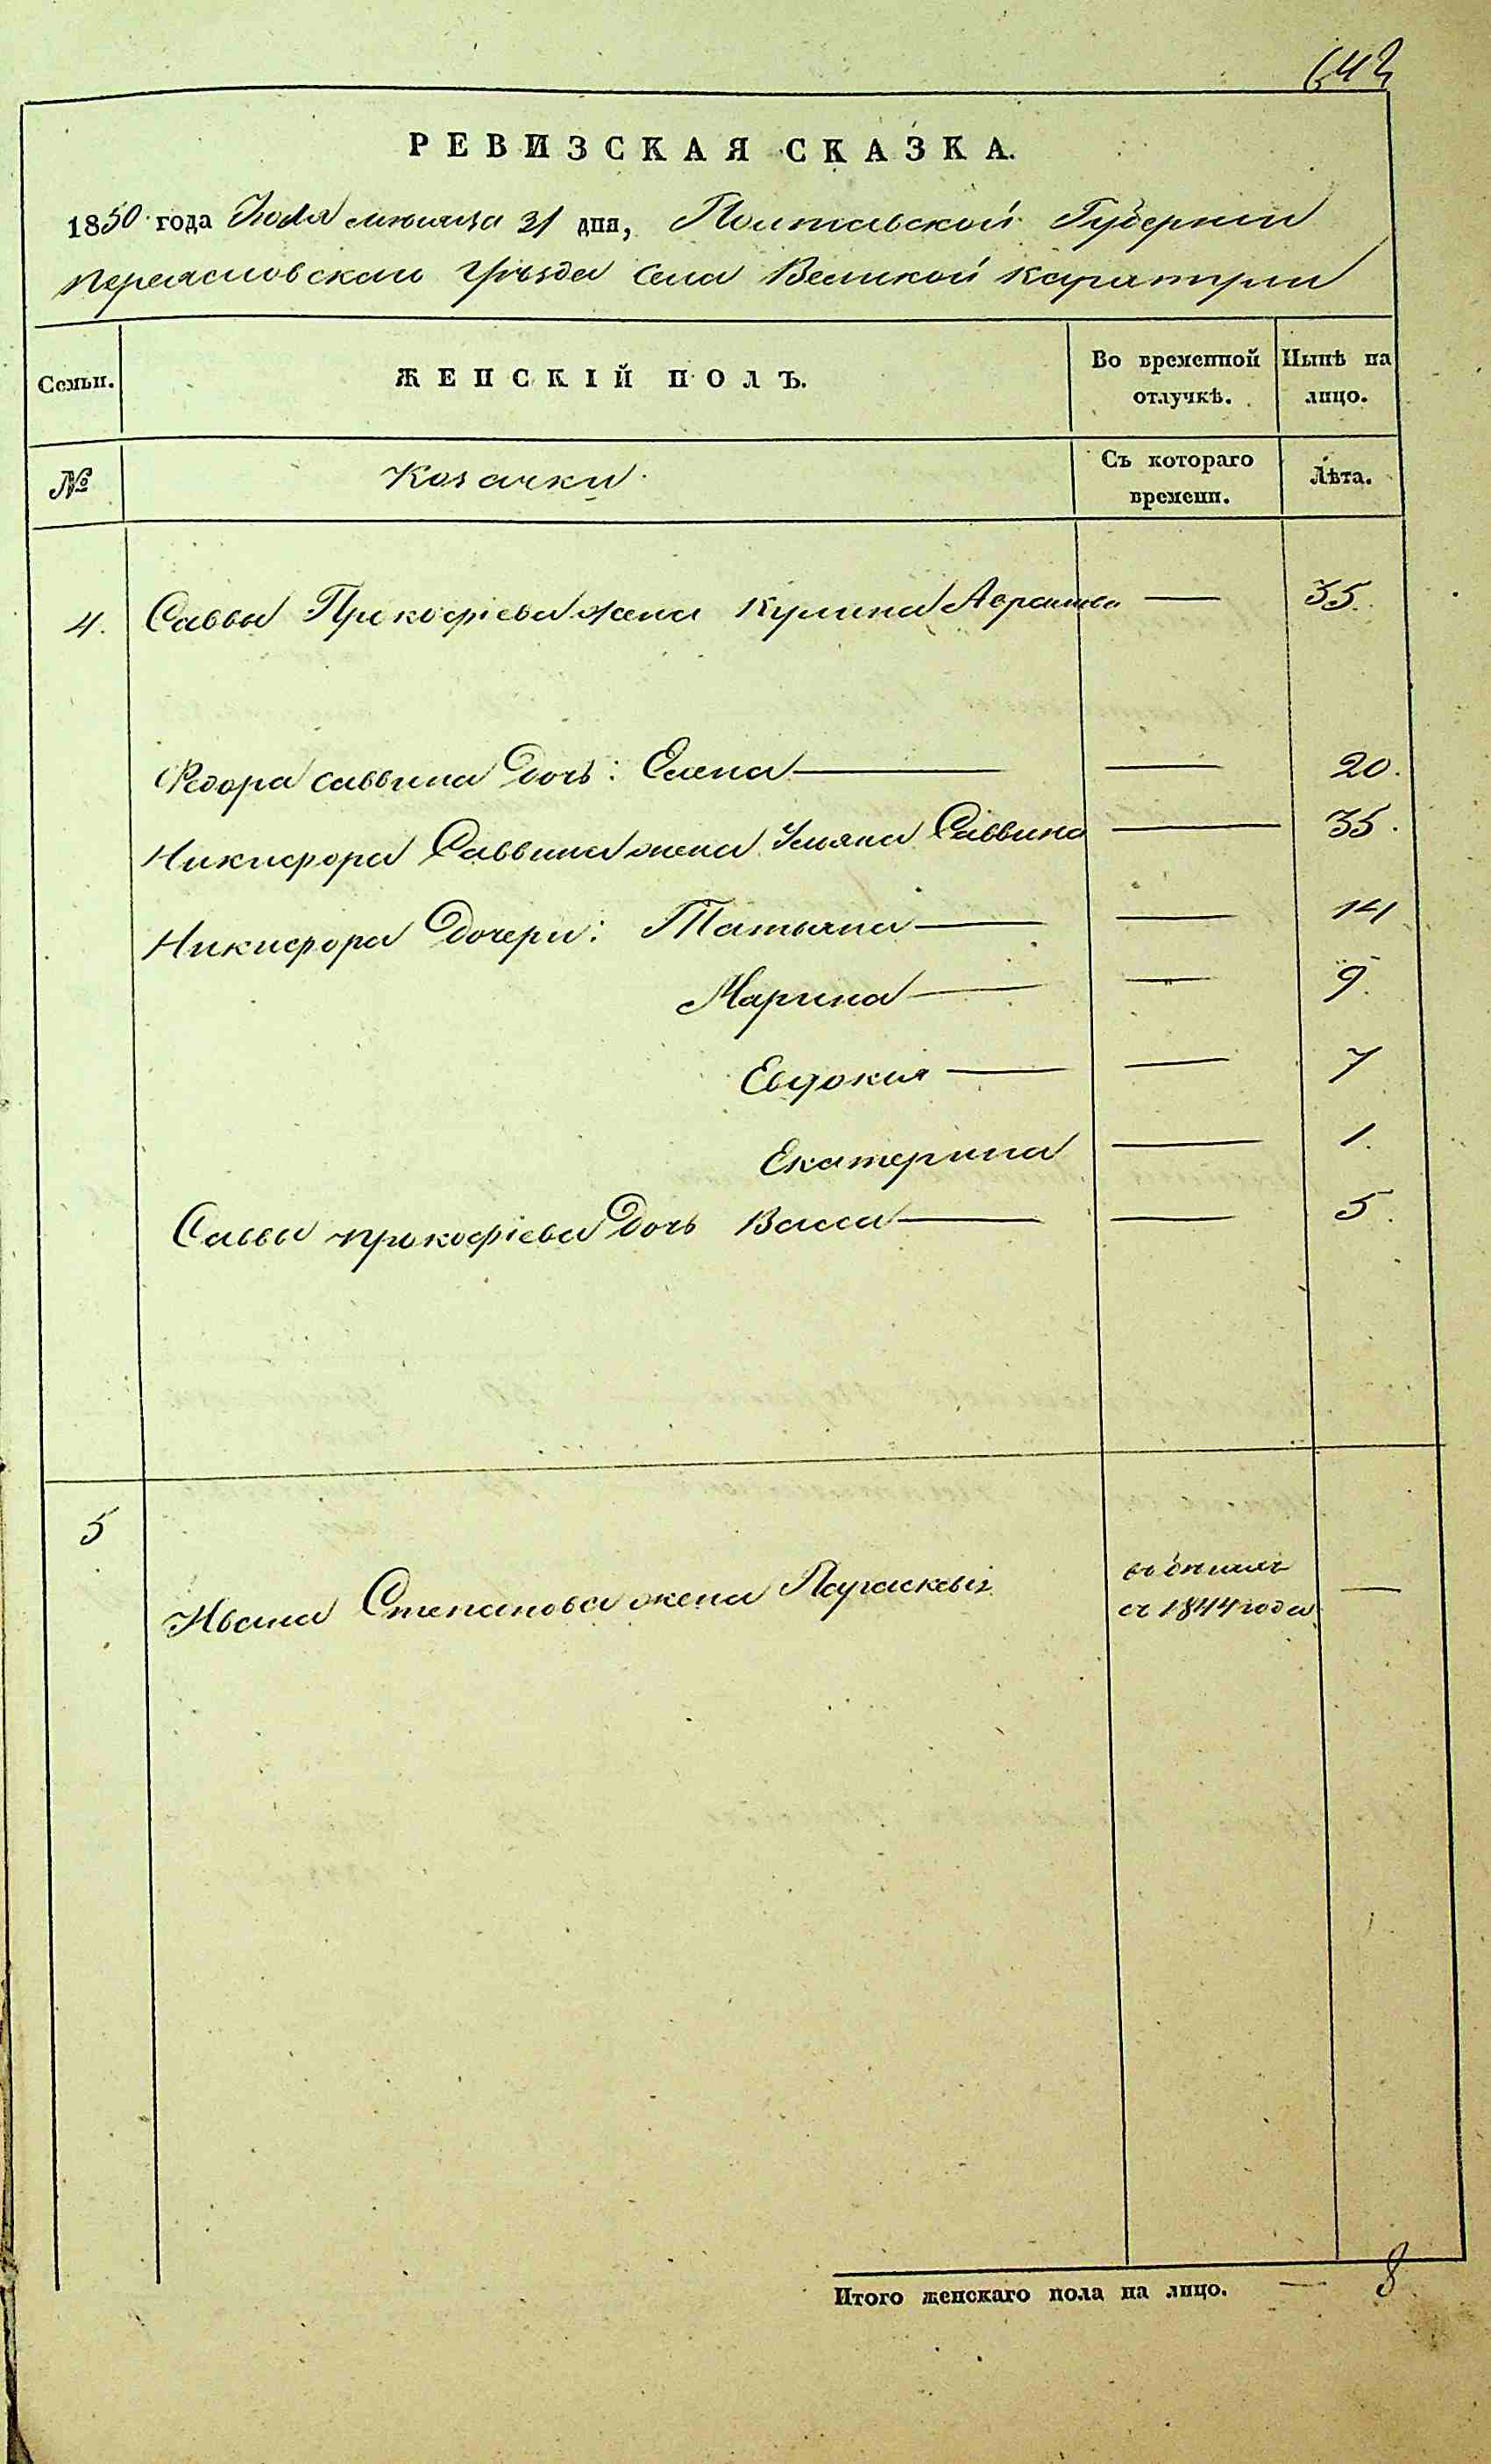 642
РЕВИЗСКАЯ СКАЗКА.
1850 года Июля месяца 31 дня, Полтавской Губернии
Переяславскаго Уѣзда Села Великой Каратули
Семьи.
ЖЕНСКІЙ ПОЛЪ.
Во временной отлучкѣ.
Нынѣ на лицо.
№
Козачки.
Съ котораго времени.
Лѣта.
4. Саввы Прокофіева жена Кулина — 35.
Федора Саввина дочь: Елена — — 20.
Никифора Саввина жена Ульяна Саввина — 35.
Никифора дочери: Татьяна — — 14
Марина — — 9.
Евдокия — — 7
Екатерина — 1.
Саввы Прокофіева дочь Васса — — 5.
5
Ивана Степанова жена Параскевія
въ бегахъ
съ 1844 года —
Итого женскаго пола на лицо. — 8